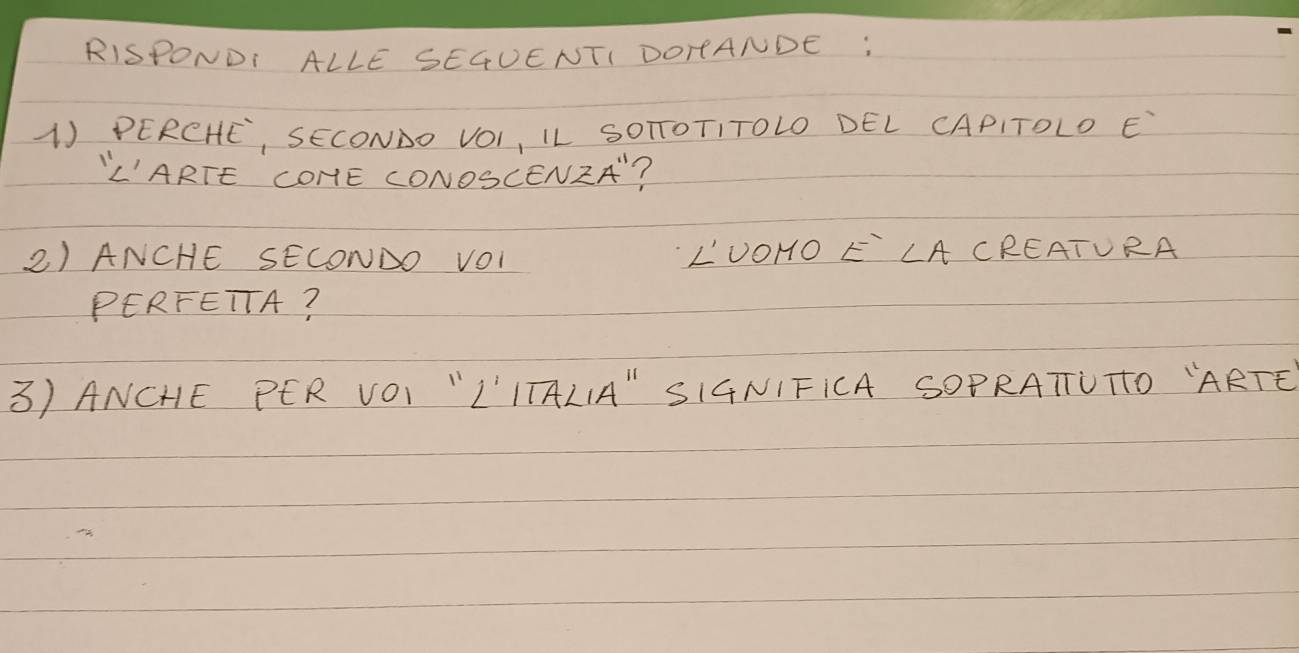 RISPONDI ALLE SEGUENTI DOMANDE :
1) PERCHÈ, SECONDO VOI, IL SOTTOTITOLO DEL CAPITOLO È
"L'ARTE COME CONOSCENZA"?
2) ANCHE SECONDO VOI L'UOMO È LA CREATURA
PERFETTA?
3) ANCHE PER VOI "L'ITALIA" SIGNIFICA SOPRATTUTTO "ARTE"